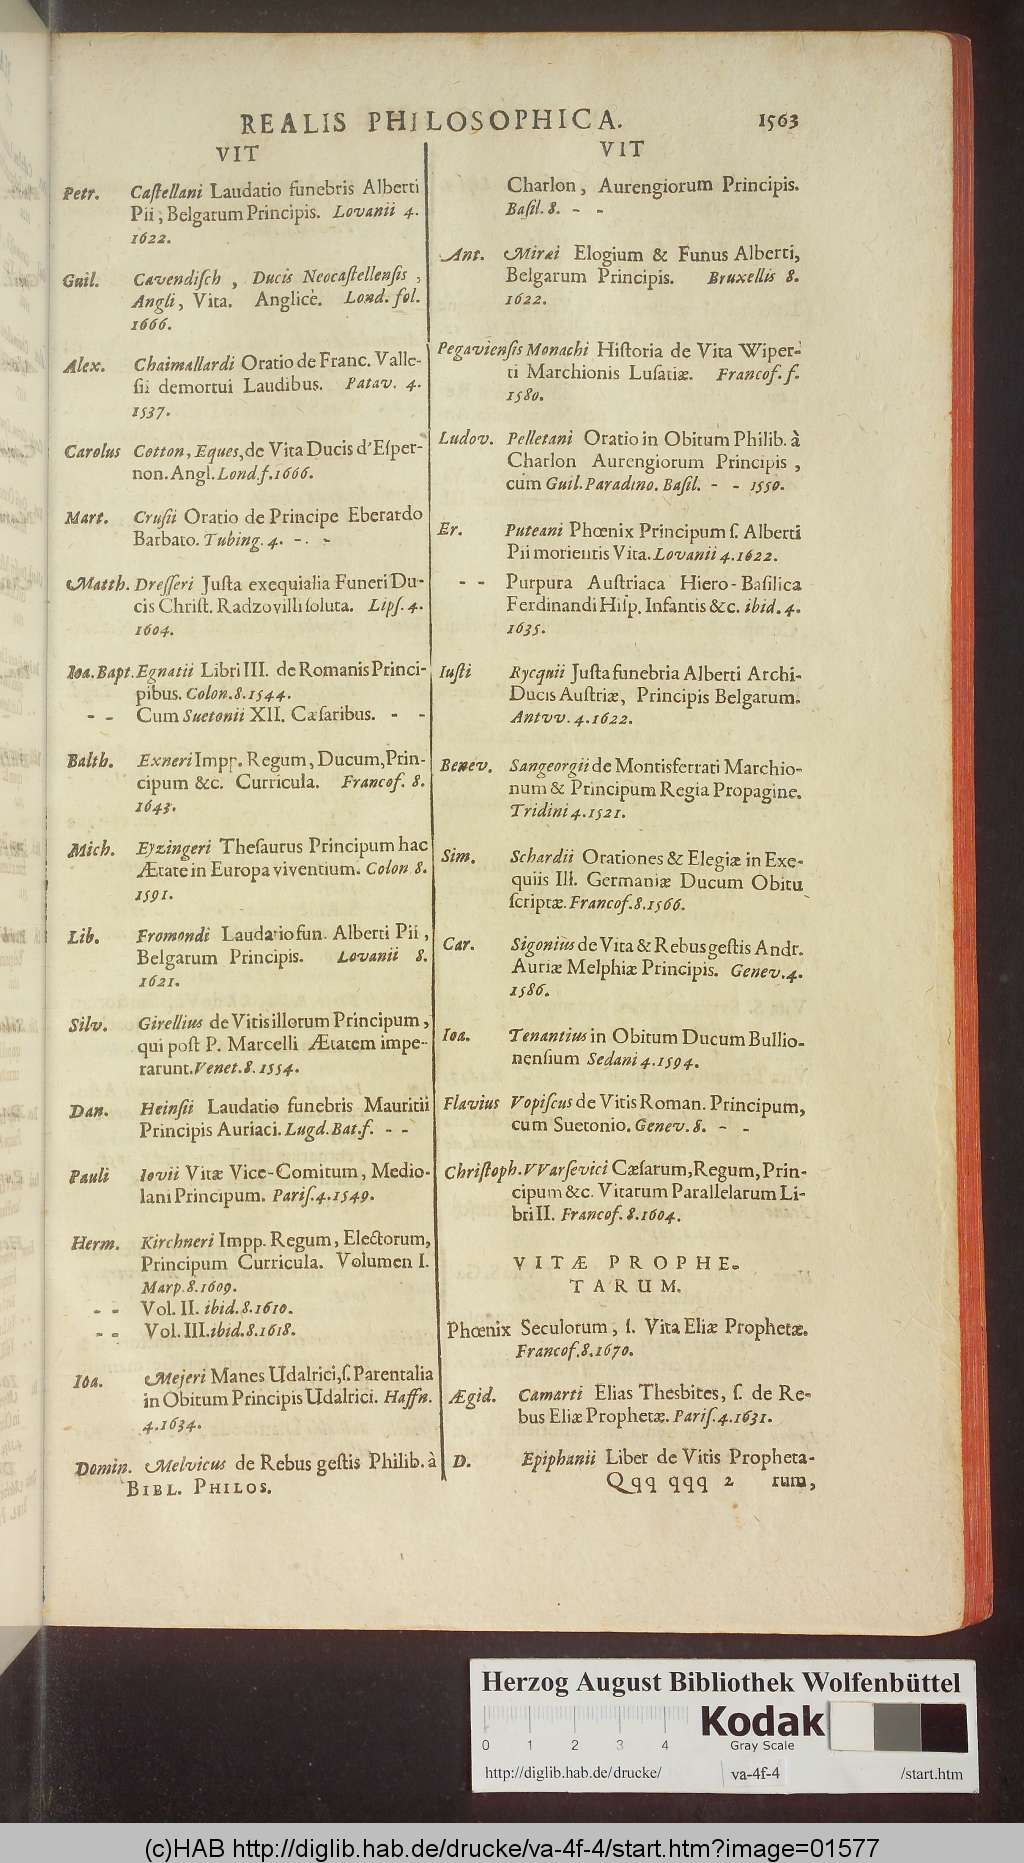 REALIS PHILOSOPHICA. 1563
VIT
Petr. Caſtellani Laudatio funebris Alberti
Pii, Belgarum Principis. Lovanii 4.
1622.
Guil. Cavendiſch, Ducis Neocaſtellenſis,
Angli, Vita. Anglicè. Lond. fol.
1666.
Alex. Chaimallardi Oratio de Franc. Valle-
ſii demortui Laudibus. Patav. 4.
1537.
Carolus Cotton, Eques, de Vita Ducis d'Eſper-
non. Angl. Lond. f. 1666.
Mart. Cruſii Oratio de Principe Eberardo
Barbato. Tubing. 4. - -
Matth. Dreſſeri Juſta exequialia Funeri Du-
cis Chriſt. Radzovilli ſoluta. Lipſ. 4.
1604.
Ioa. Bapt. Egnatii Libri III. de Romanis Princi-
pibus. Colon. 8. 1544.
- - Cum Suetonii XII. Cæſaribus. - -
Balth. Exneri Impp. Regum, Ducum, Prin-
cipum &c. Curricula. Francof. 8.
1643.
Mich. Eyzingeri Theſaurus Principum hac
Ætate in Europa viventium. Colon 8.
1591.
Lib. Fromondi Laudatio fun. Alberti Pii,
Belgarum Principis. Lovanii 8.
1621.
Silv. Girellius de Vitis illorum Principum,
qui poſt P. Marcelli Ætatem impe-
rarunt. Venet. 8. 1554.
Dan. Heinſii Laudatio funebris Mauritii
Principis Auriaci. Lugd. Bat. f. - -
Pauli Iovii Vitæ Vice-Comitum, Medio-
lani Principum. Pariſ. 4. 1549.
Herm. Kirchneri Impp. Regum, Electorum,
Principum Curricula. Volumen I.
Marp. 8. 1609.
- - Vol. II. ibid. 8. 1610.
- - Vol. III. ibid. 8. 1618.
Ioa. Mejeri Manes Udalrici, ſ. Parentalia
in Obitum Principis Udalrici. Haffn.
4. 1634.
Domin. Melvicus de Rebus geſtis Philib. à
BIBL. PHILOS.
VIT
Charlon, Aurengiorum Principis.
Baſil. 8. - -
Ant. Miræi Elogium & Funus Alberti,
Belgarum Principis. Bruxellis 8.
1622.
Pegavienſis Monachi Hiſtoria de Vita Wiper-
ti Marchionis Luſatiæ. Francof. f.
1580.
Ludov. Pelletani Oratio in Obitum Philib. à
Charlon Aurengiorum Principis,
cum Guil. Paradino. Baſil. - - 1550.
Er. Puteani Phœnix Principum ſ. Alberti
Pii morientis Vita. Lovanii 4. 1622.
- - Purpura Auſtriaca Hiero-Baſilica
Ferdinandi Hiſp. Infantis &c. ibid. 4.
1635.
Iuſti Rycquii Juſta funebria Alberti Archi-
Ducis Auſtriæ, Principis Belgarum.
Antvv. 4. 1622.
Benev. Sangeorgii de Montisferrati Marchio-
num & Principum Regia Propagine.
Tridini 4. 1521.
Sim. Schardii Orationes & Elegiæ in Exe-
quiis Ill. Germaniæ Ducum Obitu
ſcriptæ. Francof. 8. 1566.
Car. Sigonius de Vita & Rebus geſtis Andr.
Auriæ Melphiæ Principis. Genev. 4.
1586.
Ioa. Tenantius in Obitum Ducum Bullio-
nenſium Sedani 4. 1594.
Flavius Vopiſcus de Vitis Roman. Principum,
cum Suetonio. Genev. 8. - -
Chriſtoph. VVarſevici Cæſarum, Regum, Prin-
cipum &c. Vitarum Parallelarum Li-
bri II. Francof. 8. 1604.
VITÆ PROPHE-
TARUM.
Phœnix Seculorum, ſ. Vita Eliæ Prophetæ.
Francof. 8. 1670.
Ægid. Camarti Elias Thesbites, ſ. de Re-
bus Eliæ Prophetæ. Pariſ. 4. 1631.
D. Epiphanii Liber de Vitis Propheta-
Qqq qqq 2 rum,
Herzog August Bibliothek Wolfenbüttel
Kodak
0 1 2 3 4 Gray Scale
http://diglib.hab.de/drucke/ va-4f-4 /start.htm
(c)HAB http://diglib.hab.de/drucke/va-4f-4/start.htm?image=01577